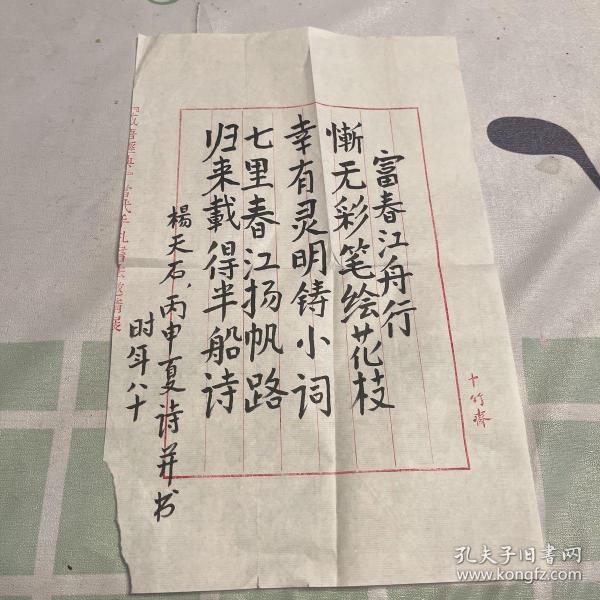 富春江舟行
慚无彩笔绘花枝
幸有灵明铸小词
七里春江扬帆路
归来載得半船诗
楊天石，丙申夏诗并书
时年八十
十竹齋
孔夫子旧书网
www.kongfz.com